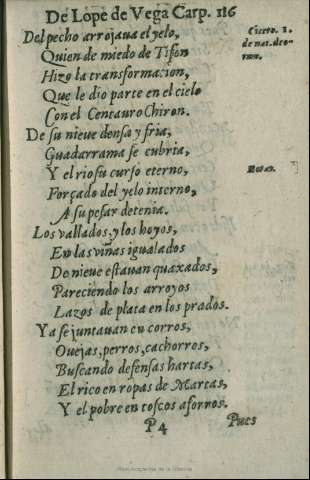 De Lope de Vega Carp. 116
Del pecho arrojaua el yelo,
Quien de miedo de Tifon
Hizo la transformacion,
Que le dio parte en el cielo
Con el Centauro Chiron.
De su nieve densa y fria,
Guadarrama se cubria,
Y el rio su curso eterno,
Forçado del yelo interno,
A su pesar detenia.
Los vallados, y los hoyos,
En las viñas igualados
De nieve estauan quaxados,
Pareciendo los arroyos
Lazos de plata en los prados.
Ya se juntauan en corros,
Ouejas, perros, cachorros,
Buscando defensas hartas,
El rico en ropas de Martas,
Y el pobre en toscos aforros.
P4
Pues
Cicero. 2.
de nat. deo-
rum.
Real Academia de la Historia